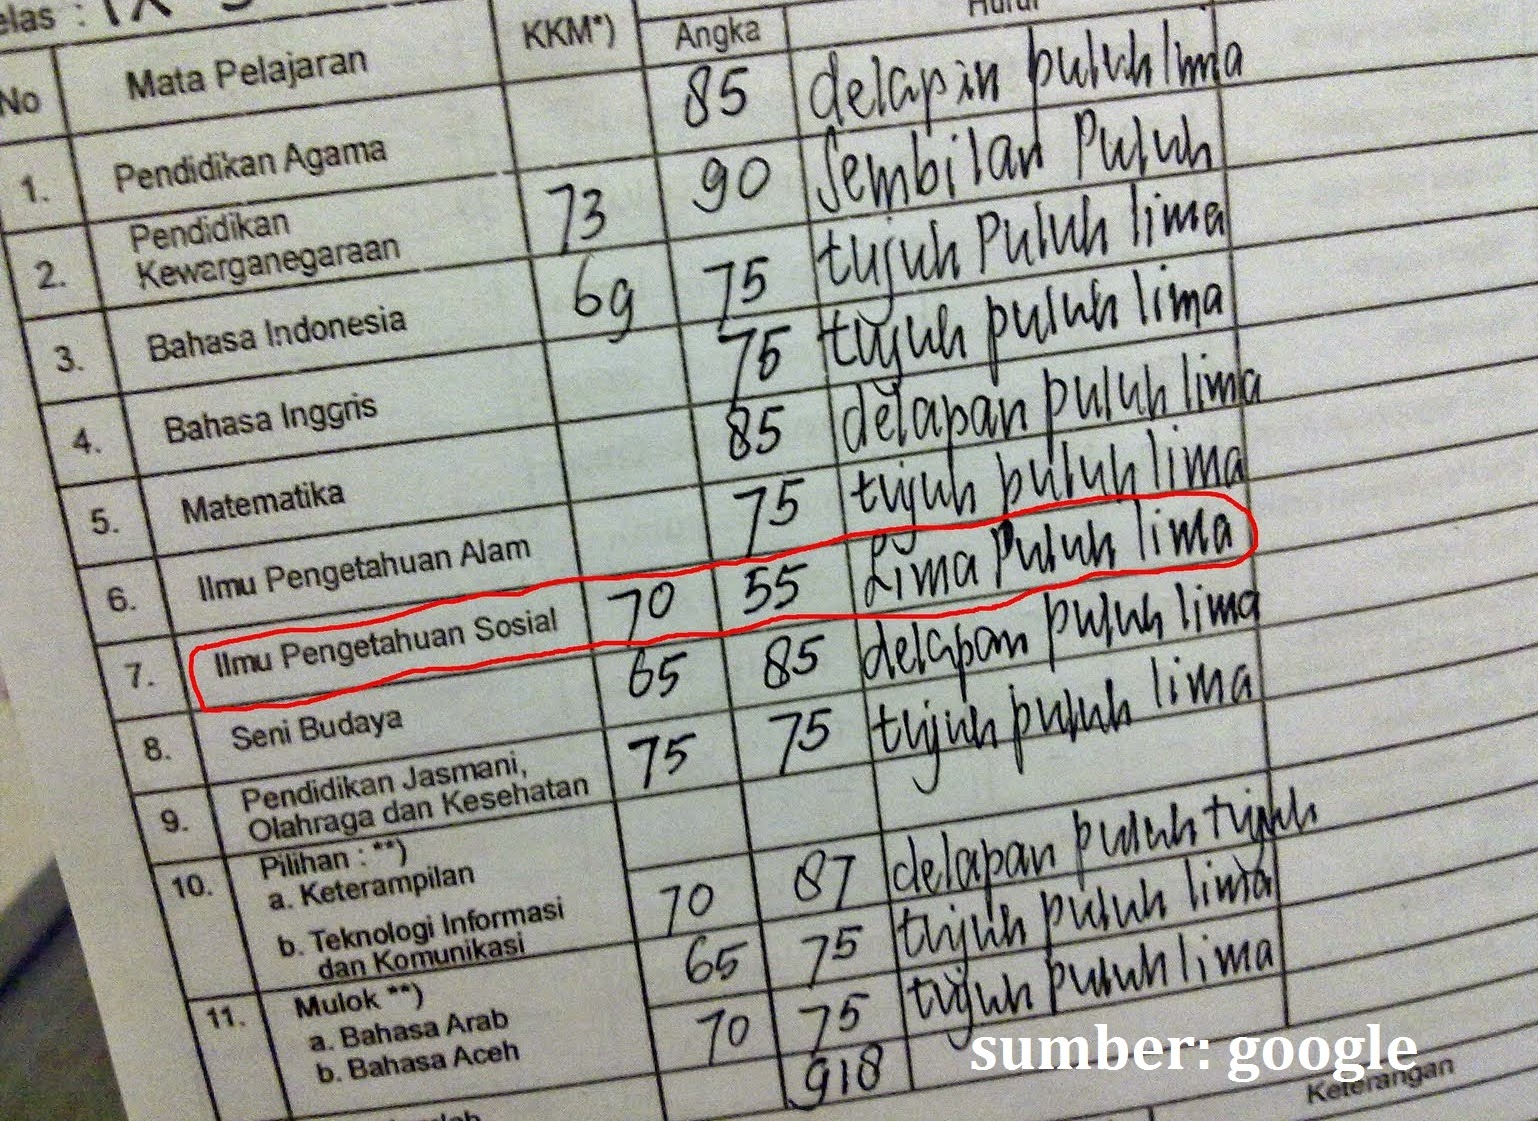 elas : IX
No Mata Pelajaran KKM*) Angka Huruf
1. Pendidikan Agama 85 delapin puluh lima
2. Pendidikan
Kewarganegaraan 73 90 Sembilan Puluh
3. Bahasa Indonesia 69 75 tujuh Puluh lima
4. Bahasa Inggris 75 tujuh puluh lima
5. Matematika 85 delapan puluh lima
6. Ilmu Pengetahuan Alam 75 tujuh puluh lima
7. Ilmu Pengetahuan Sosial 70 55 Lima Puluh lima
8. Seni Budaya 65 85 delapan puluh lima
9. Pendidikan Jasmani,
Olahraga dan Kesehatan 75 75 tujuh puluh lima
10. Pilihan : **)
a. Keterampilan
b. Teknologi Informasi
dan Komunikasi 70 87 delapan puluh tujuh
11. Mulok **)
a. Bahasa Arab 65 75 tujuh puluh lima
b. Bahasa Aceh 70 75 tujuh puluh lima
918
sumber: google
Keterangan